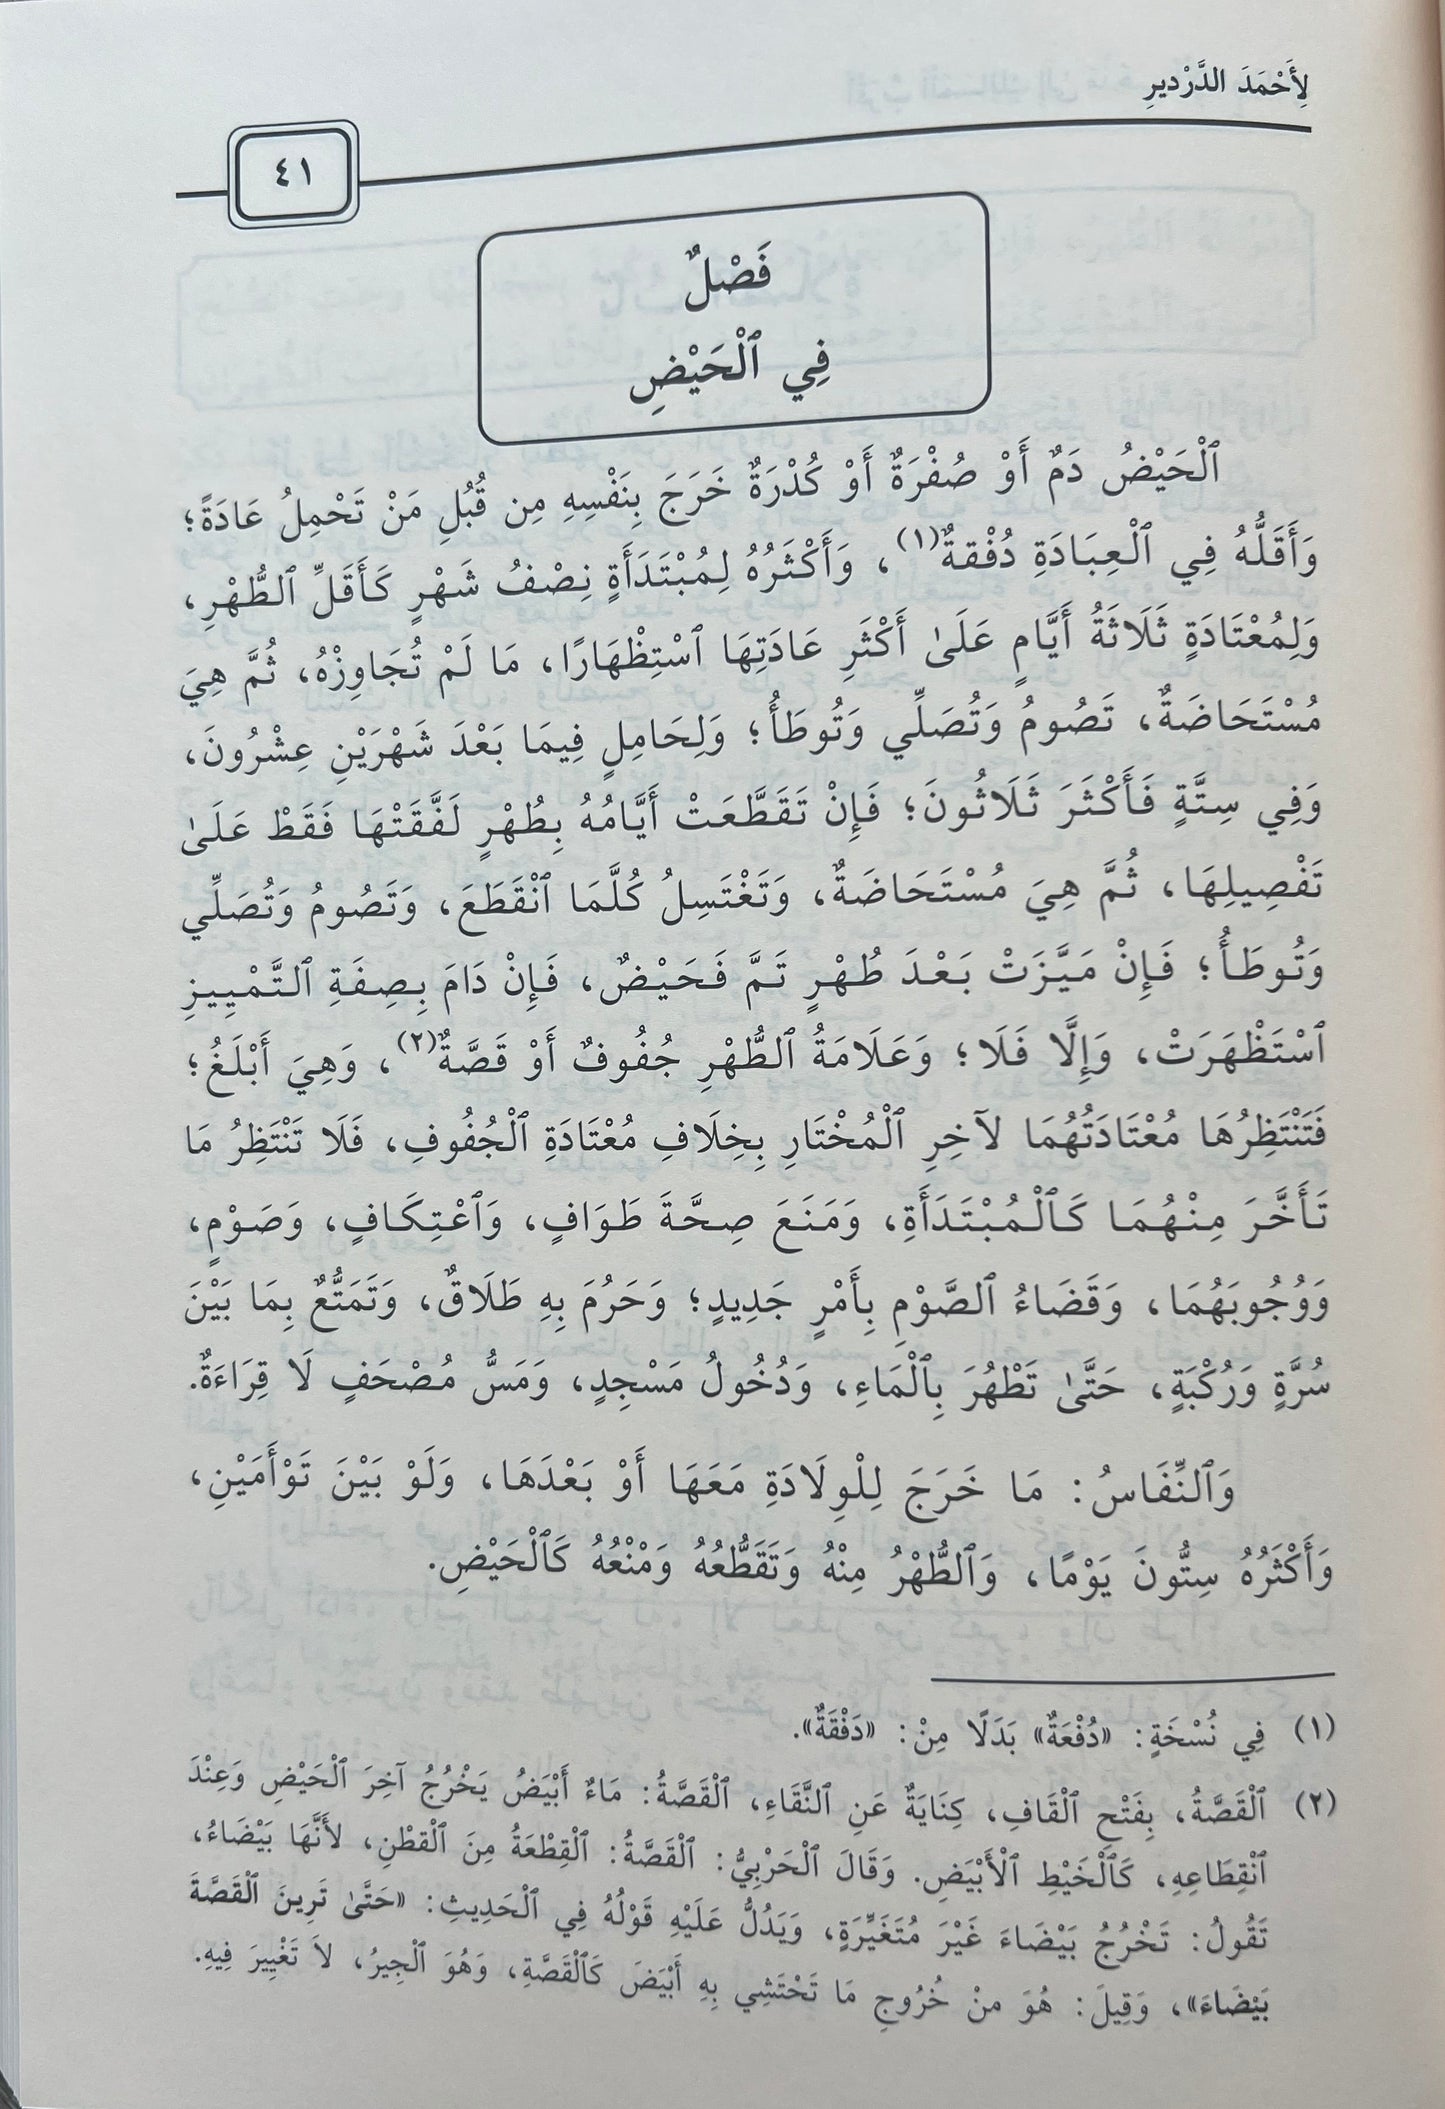 لِأَحْمَدَ الدَّرْدِيرِ
٤١
فَصْلٌ
فِي ٱلْحَيْضِ
ٱلْحَيْضُ دَمٌ أَوْ صُفْرَةٌ أَوْ كُدْرَةٌ خَرَجَ بِنَفْسِهِ مِن قُبُلِ مَنْ تَحْمِلُ عَادَةً؛
وَأَقَلُّهُ فِي ٱلْعِبَادَةِ دُفْقةٌ(١)، وَأَكْثَرُهُ لِمُبْتَدَأَةٍ نِصْفُ شَهْرٍ كَأَقَلِّ ٱلطُّهْرِ،
وَلِمُعْتَادَةٍ ثَلَاثَةُ أَيَّامٍ عَلَىٰ أَكْثَرِ عَادَتِهَا ٱسْتِظْهَارًا، مَا لَمْ تُجَاوِزْهُ، ثُمَّ هِيَ
مُسْتَحَاضَةٌ، تَصُومُ وَتُصَلِّي وَتُوطَأُ؛ وَلِحَامِلٍ فِيمَا بَعْدَ شَهْرَيْنِ عِشْرُونَ،
وَفِي سِتَّةٍ فَأَكْثَرَ ثَلَاثُونَ؛ فَإِنْ تَقَطَّعَتْ أَيَّامُهُ بِطُهْرٍ لَفَّقَتْهَا فَقَطْ عَلَىٰ
تَفْصِيلِهَا، ثُمَّ هِيَ مُسْتَحَاضَةٌ، وَتَغْتَسِلُ كُلَّمَا ٱنْقَطَعَ، وَتَصُومُ وَتُصَلِّي
وَتُوطَأُ؛ فَإِنْ مَيَّزَتْ بَعْدَ طُهْرٍ تَمَّ فَحَيْضٌ، فَإِنْ دَامَ بِصِفَةِ ٱلتَّمْيِيزِ
ٱسْتَظْهَرَتْ، وَإِلَّا فَلَا؛ وَعَلَامَةُ ٱلطُّهْرِ جُفُوفٌ أَوْ قَصَّةٌ(٢)، وَهِيَ أَبْلَغُ؛
فَتَنْتَظِرُهَا مُعْتَادَتُهُمَا لآخِرِ ٱلْمُخْتَارِ بِخِلَافِ مُعْتَادَةِ ٱلْجُفُوفِ، فَلَا تَنْتَظِرُ مَا
تَأَخَّرَ مِنْهُمَا كَٱلْمُبْتَدَأَةِ، وَمَنَعَ صِحَّةَ طَوَافٍ، وَٱعْتِكَافٍ، وَصَوْمٍ،
وَوُجُوبَهُمَا، وَقَضَاءُ ٱلصَّوْمِ بِأَمْرٍ جَدِيدٍ؛ وَحَرُمَ بِهِ طَلَاقٌ، وَتَمَتُّعٌ بِمَا بَيْنَ
سُرَّةٍ وَرُكْبَةٍ، حَتَّىٰ تَطْهُرَ بِٱلْمَاءِ، وَدُخُولُ مَسْجِدٍ، وَمَسُّ مُصْحَفٍ لَا قِرَاءَةٌ.
وَٱلنِّفَاسُ: مَا خَرَجَ لِلْوِلَادَةِ مَعَهَا أَوْ بَعْدَهَا، وَلَوْ بَيْنَ تَوْأَمَيْنِ،
وَأَكْثَرُهُ سِتُّونَ يَوْمًا، وَٱلطُّهْرُ مِنْهُ وَتَقَطُّعُهُ وَمَنْعُهُ كَٱلْحَيْضِ.
(١) فِي نُسْخَةٍ: «دُفْعَةٌ» بَدَلًا مِنْ: «دَفْقَةٌ».
(٢) ٱلْقَصَّةُ، بِفَتْحِ ٱلْقَافِ، كِنَايَةٌ عَنِ ٱلنَّقَاءِ، ٱلْقَصَّةُ: مَاءٌ أَبْيَضُ يَخْرُجُ آخِرَ ٱلْحَيْضِ وَعِنْدَ
ٱنْقِطَاعِهِ، كَٱلْخَيْطِ ٱلْأَبْيَضِ. وَقَالَ ٱلْحَرْبِيُّ: ٱلْقَصَّةُ: ٱلْقِطْعَةُ مِنَ ٱلْقطْنِ، لأَنَّهَا بَيْضَاءُ،
تَقُولُ: تَخْرُجُ بَيْضَاءَ غَيْرَ مُتَغَيِّرَةٍ، وَيَدُلُّ عَلَيْهِ قَوْلُهُ فِي ٱلْحَدِيثِ: «حَتَّىٰ تَرِينَ ٱلْقَصَّةَ
بَيْضَاءَ»، وَقِيلَ: هُوَ منْ خُرُوجِ مَا تَحْتَشِي بِهِ أَبْيَضَ كَٱلْقَصَّةِ، وَهُوَ ٱلْجِيرُ، لاَ تَغْيِيرَ فِيهِ.